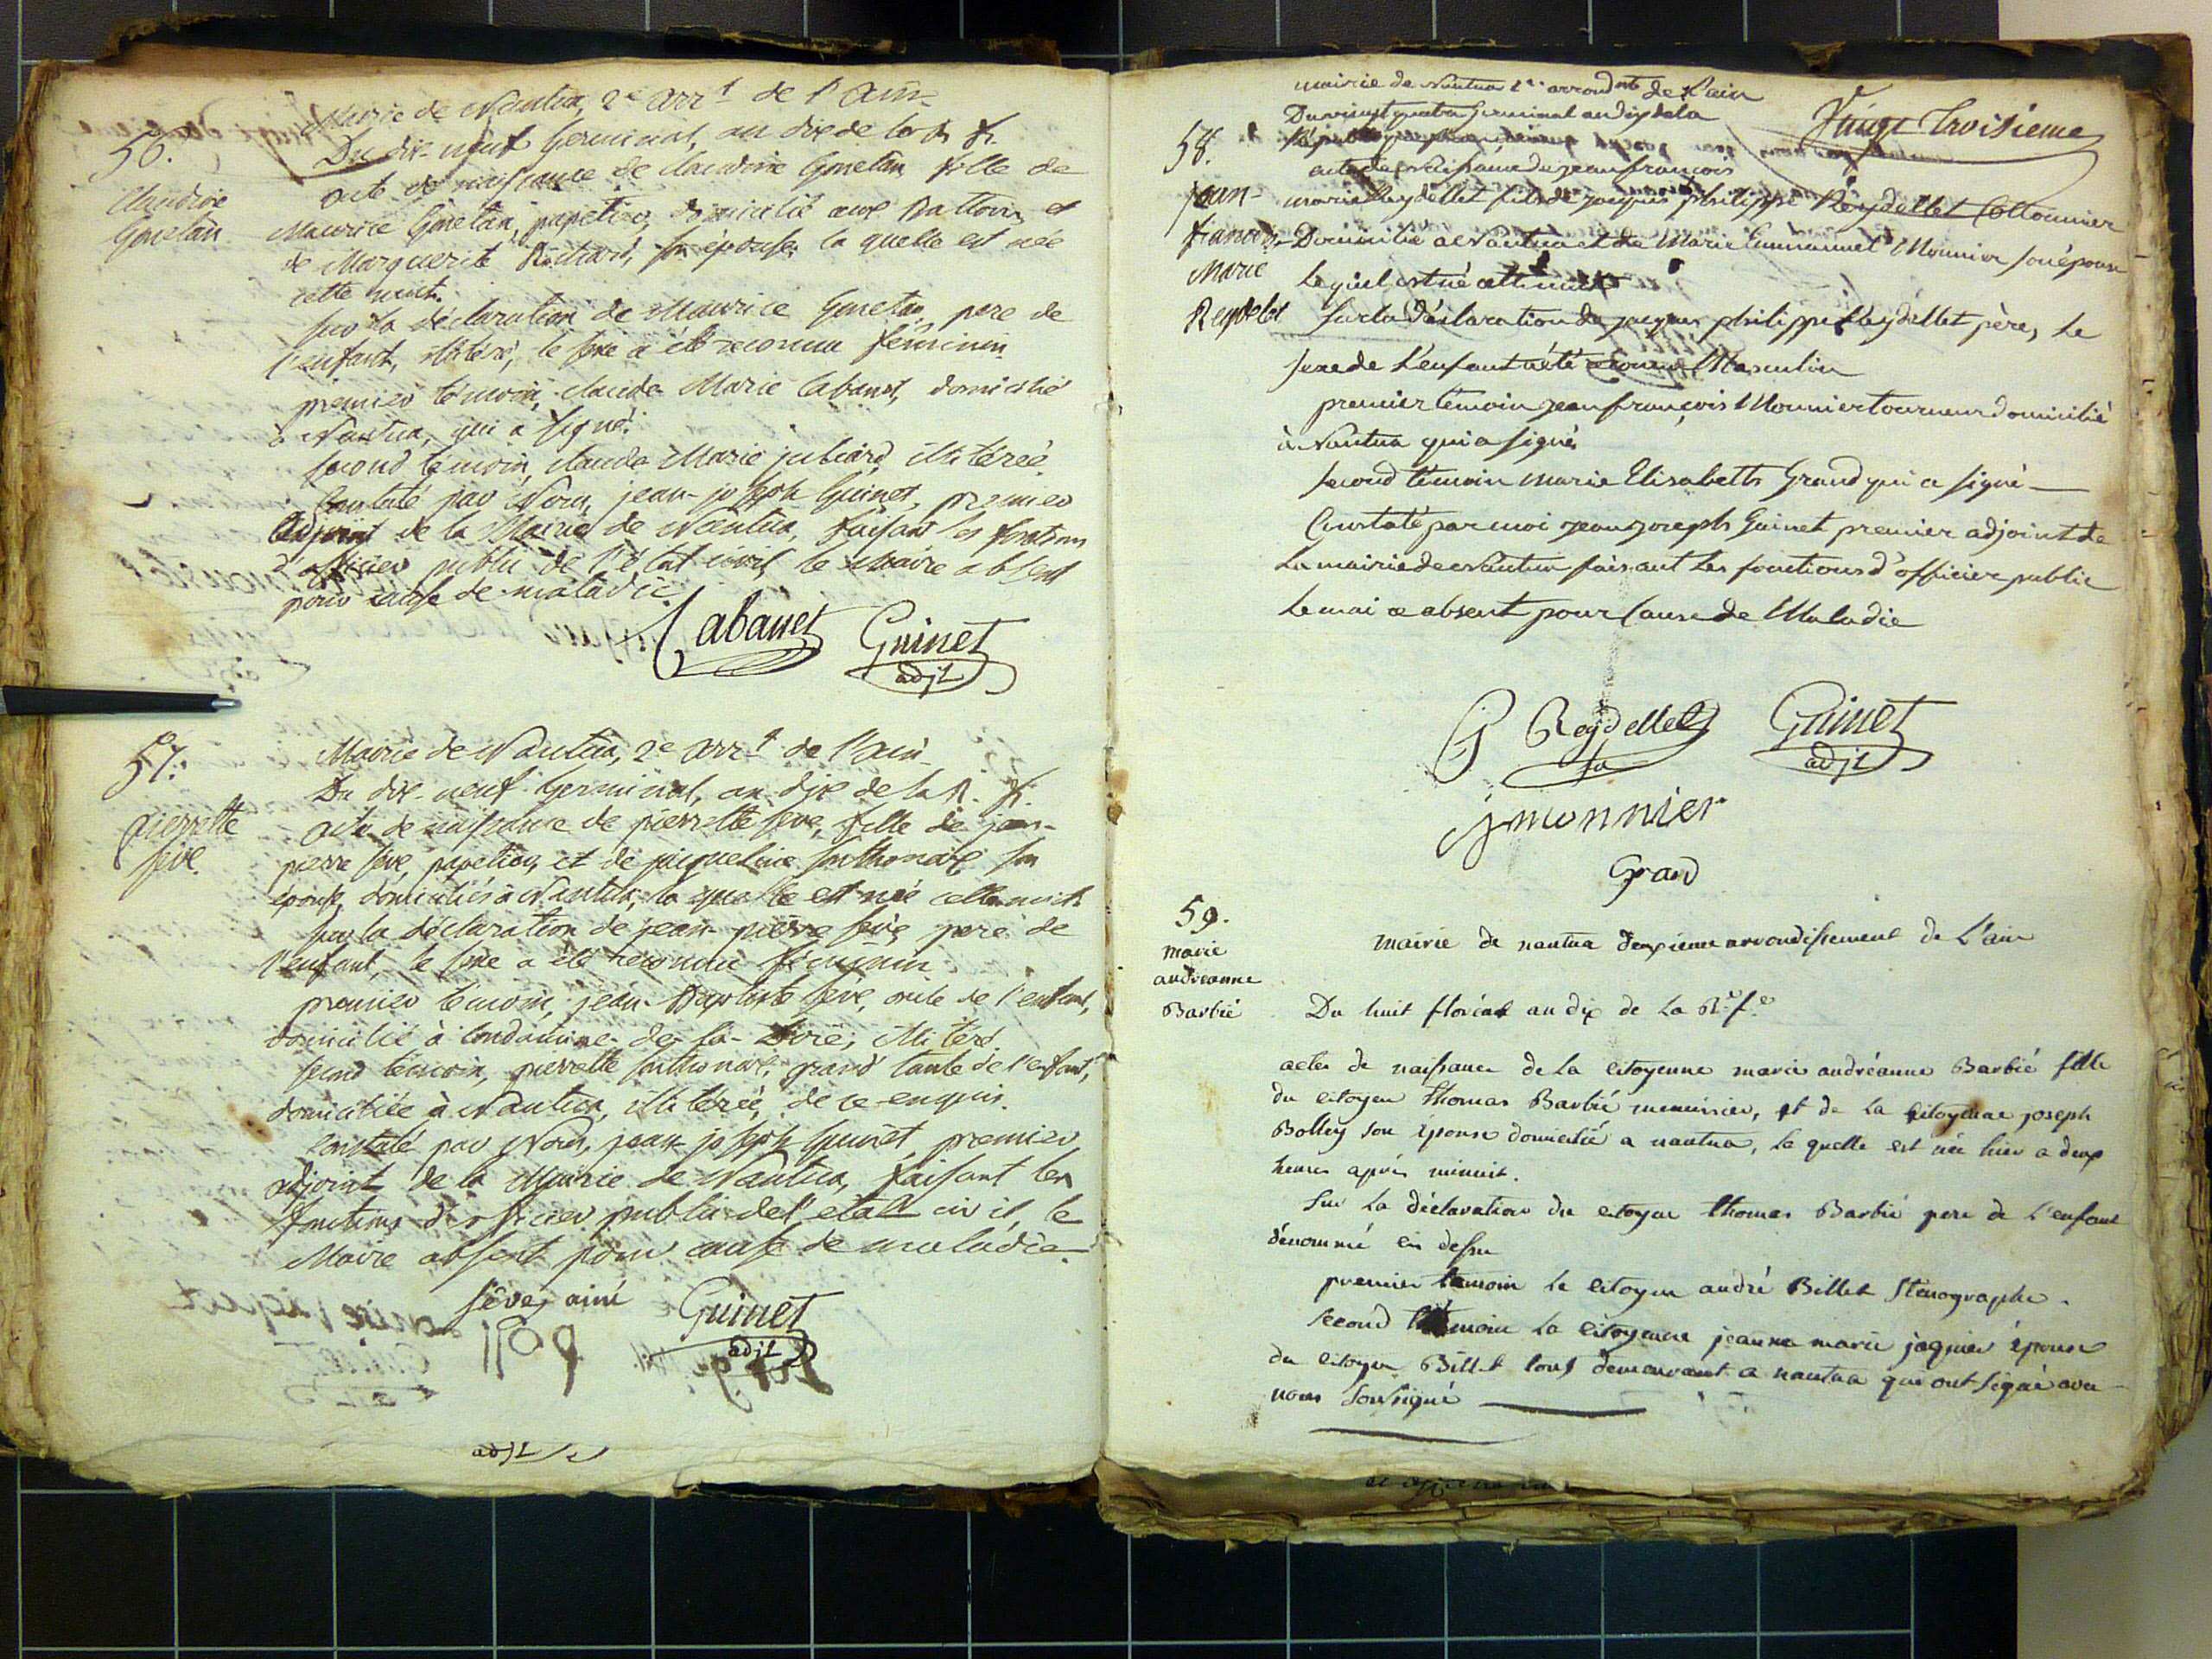 56.
Claudine
Gonetan
Mairie de Nantua, 2e arrt de l'ain
Du dix-neuf Germinal, an dix de la R. fr.
acte de naissance de Claudine Gonetan fille de
Maurice Gonetan, papetier, domicilié aux Battoirs, et
de Marguerite Richard, son épouse, la quelle est née
cette nuit.
sur la déclaration de Maurice Gonetan, pere de
l'enfant, illiteré, le sexe a été reconnu féminin
premier témoin, claude Marie Cabanet, domicilié
à Nantua, qui a signé.
second témoin, claude Marie jubiard, illiterée.
Constaté par Nous, jean-joseph Guinet, premier
adjoint de la Mairie de Nantua, faisant les fonctions
d'officier public de l'état civil, le Maire absent
pour cause de maladie.
Cabanet Guinet
adjt
57.
pierrette
séve.
Mairie de Nantua, 2e arrt de l'ain
Du dix-neuf Germinal, an dix de la R. fr.
acte de naissance de pierrette seve, fille de jean-
pierre seve, papetier, et de jacqueline sonthonax son
épouse, domiciliés à Nantua, la quelle est née cette nuit
sur la déclaration de jean-pierre séve, pere de
l'enfant, le sexe a été reconnu féminin
premier témoin, jean-Baptiste séve, oncle de l'enfant,
domicilié à Condamine-de-la-Doie, illiteré.
second témoin, pierrette sonthonax, grand tante de l'enfant,
domiciliée à Nantua, illiterée, de ce enquis.
constaté par Nous, jean-joseph Guinet, premier
adjoint de la Mairie de Nantua, faisant les
fonctions d'officier public de l'état civil, le
Maire absent pour cause de maladie
séve, ainé Guinet
adjt
adjt
Vingt Troisieme
58.
jean-
francois
Marie
Reydelet
mairie de Nantua 2e arrondmt de L'ain
Du vingt quatre Germinal an dix de la
acte de Naissance de jean françois
marie Reydellet fils de jacques philippe Reydellet Cottonnier
Domicilié a Nantua et de Marie Emmanuel Monnier son épouse
Lequel est né cette nuit
sur la Déclaration de jacques philippe Reydellet père, Le
sexe de L'enfant a été reconnu Masculin
premier témoin jean françois Monnier tourneur domicilié
à Nantua qui a signé
second témoin marie Elisabeth Grand qui a signé
Constaté par moi jean joseph Guinet premier adjoint de
La mairie de Nantua faisant Les fonctions d'officier public
Le maire absent pour Cause de Maladie
Reydellet Guinet
adjt
monnier
Grand
59.
marie
andréanne
Barbié
mairie de nantua deuxieme arrondissement de L'ain
Du huit floréal an dix de La Re. fe.
actes de naissance de La citoyenne marie andréanne Barbié fille
du citoyen thomas Barbié menuisier, et de La citoyenne joseph
Bolley son épouse domicilié a nantua, la quelle est née hier a deux
heures après minuit.
Sur La déclaration du citoyen thomas Barbié pere de L'enfant
dénommé ci dessu
premier temoin Le citoyen andré Billet Sténographe.
Second témoin La citoyenne jeanne marie jaquier épouse
du citoyen Billet tous demeurant a nantua qui ont signé avec
nous Soussigné